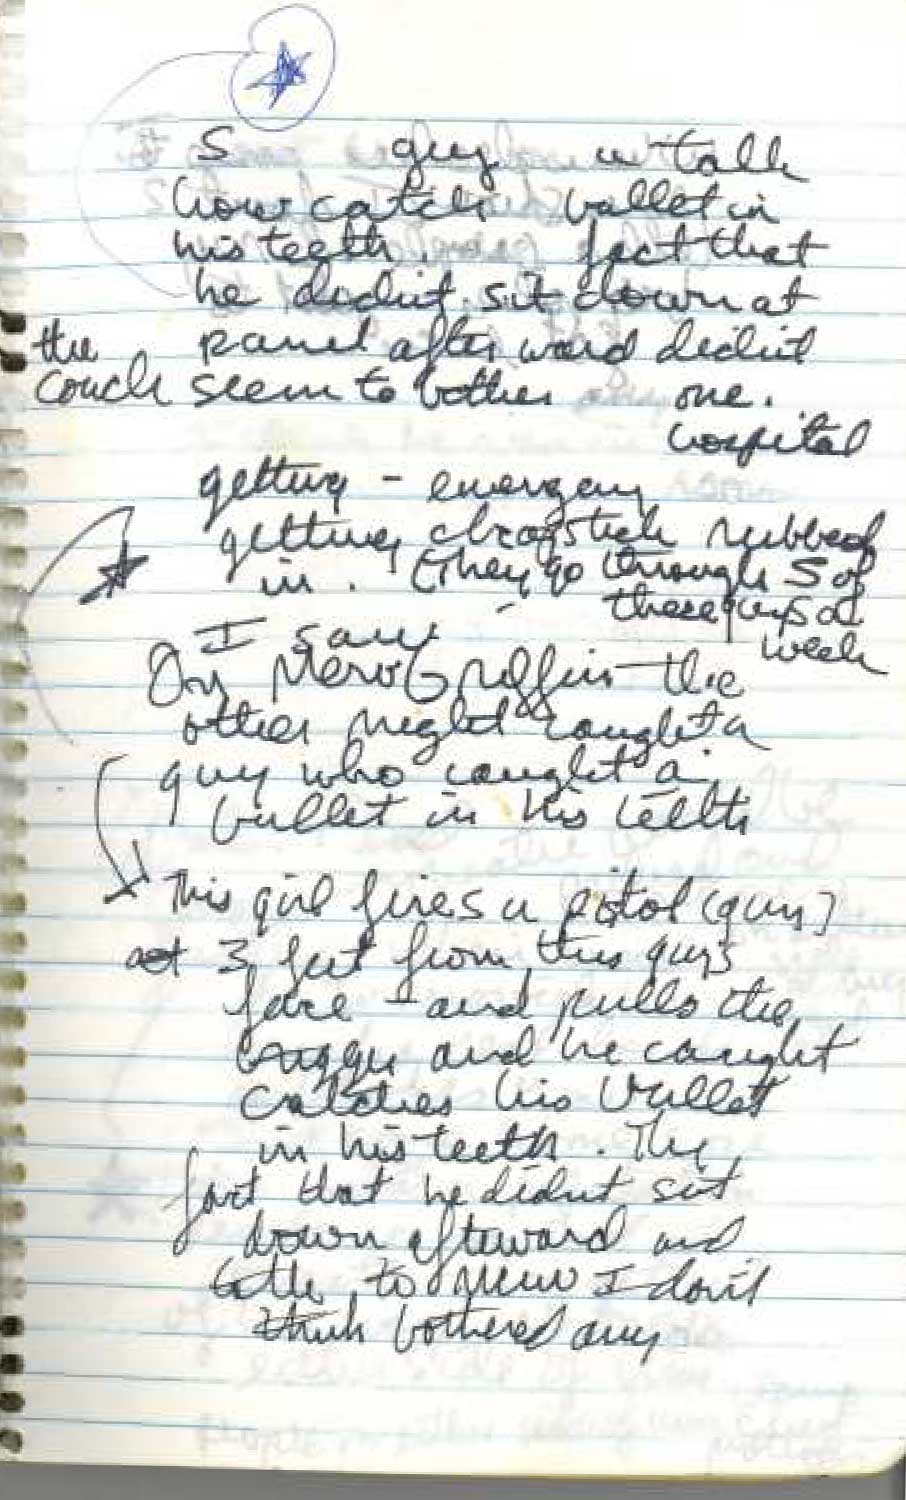 S guy talk
how catch bullet in
his teeth. fact that
he didnt sit down at
the panel afterward didnt
couch seem to bother any one.
hospital
getting - emergency
getting chopstick rubbed
in. (They go through 5 of
these guys a
week
I saw
On Merv Griffin the
other night caught a
guy who caught a
bullet in his teeth
This girl fires a pistol (gun)
at 3 feet from this guy's
face - and pulls the
trigger and he caught
catches his bullet
in his teeth. The
fact that he didnt sit
down afterward and
talk to Merv I don't
think bothered any